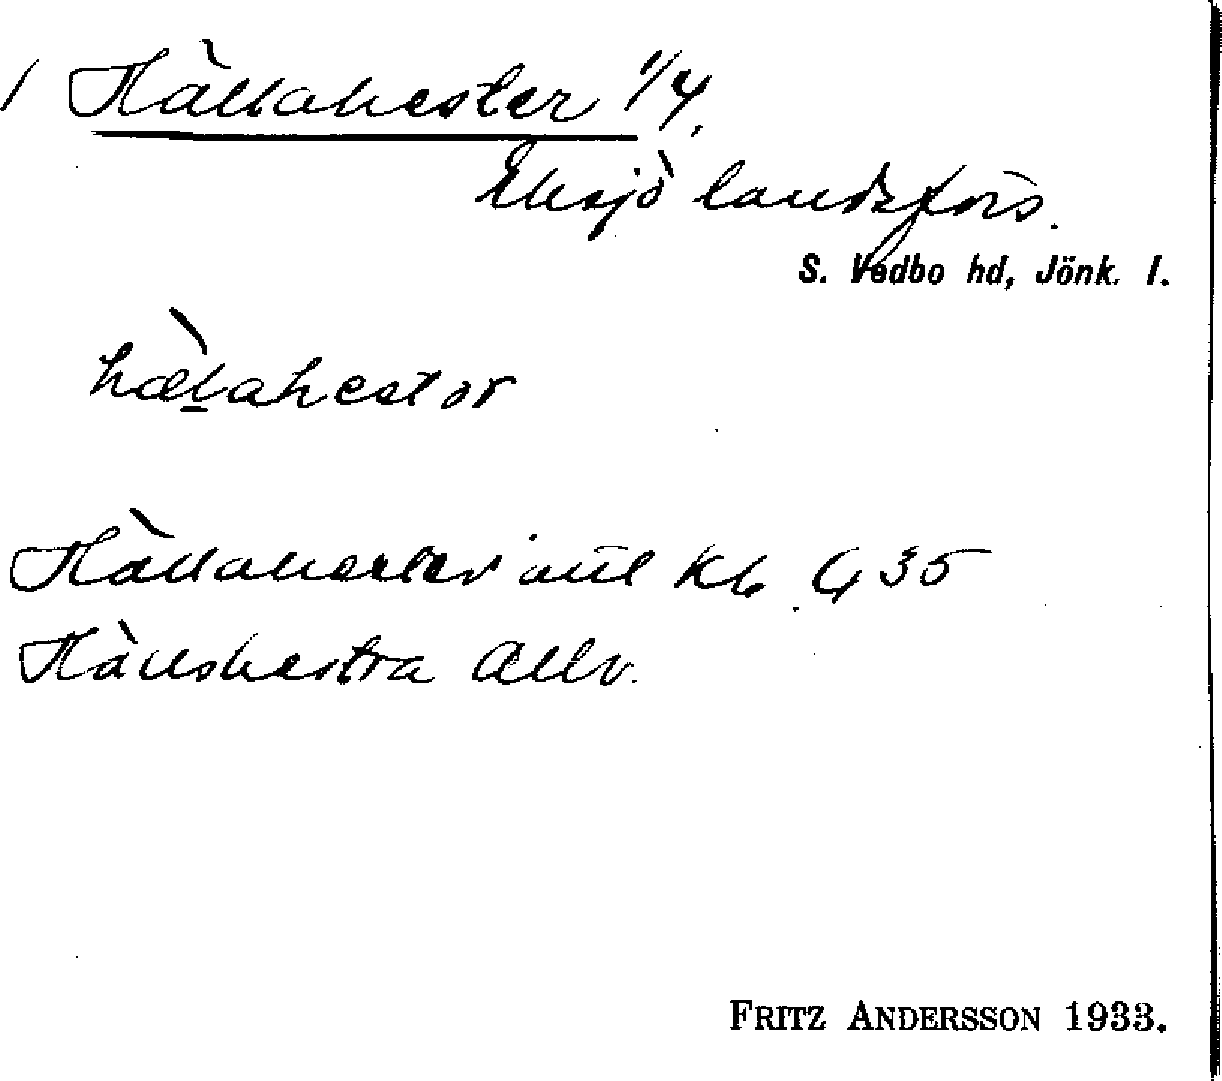 / Hällahester 1/4.
Eksjö landsförs.
S. Vedbo hd, Jönk. l.
hælahestər
Hällahester antl Kb G 35
Hällshestra Allv.
FRITZ ANDERSSON 1933.